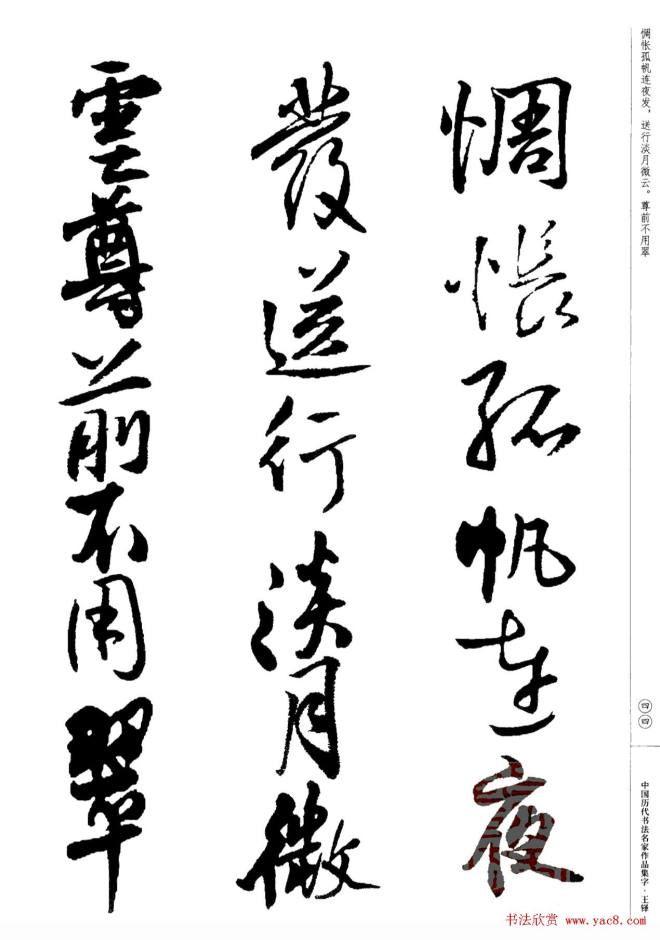 惆悵孤帆連夜
發送行淡月微
雲尊前不用翠
惆怅孤帆连夜发，送行淡月微云。尊前不用翠
四四
中国历代书法名家作品集字·王铎
书法欣赏 www.yac8.com